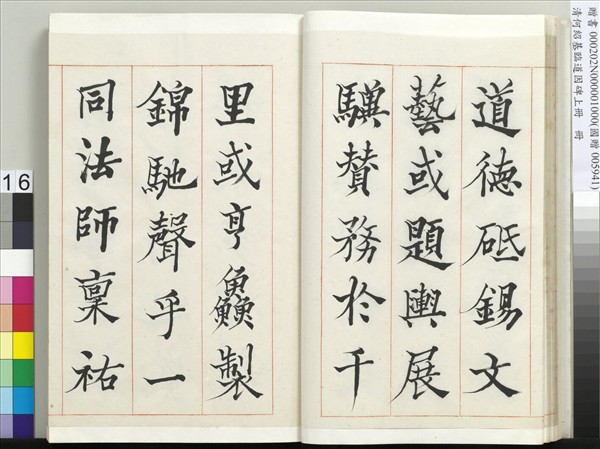 道德砥錫文
藝或題輿展
驥賛務於千
里或亨鱻製
錦馳聲乎一
同法師稟祐
贈書 000202N000001000(國贈 005941)
清何紹基臨道因碑上冊 冊
16